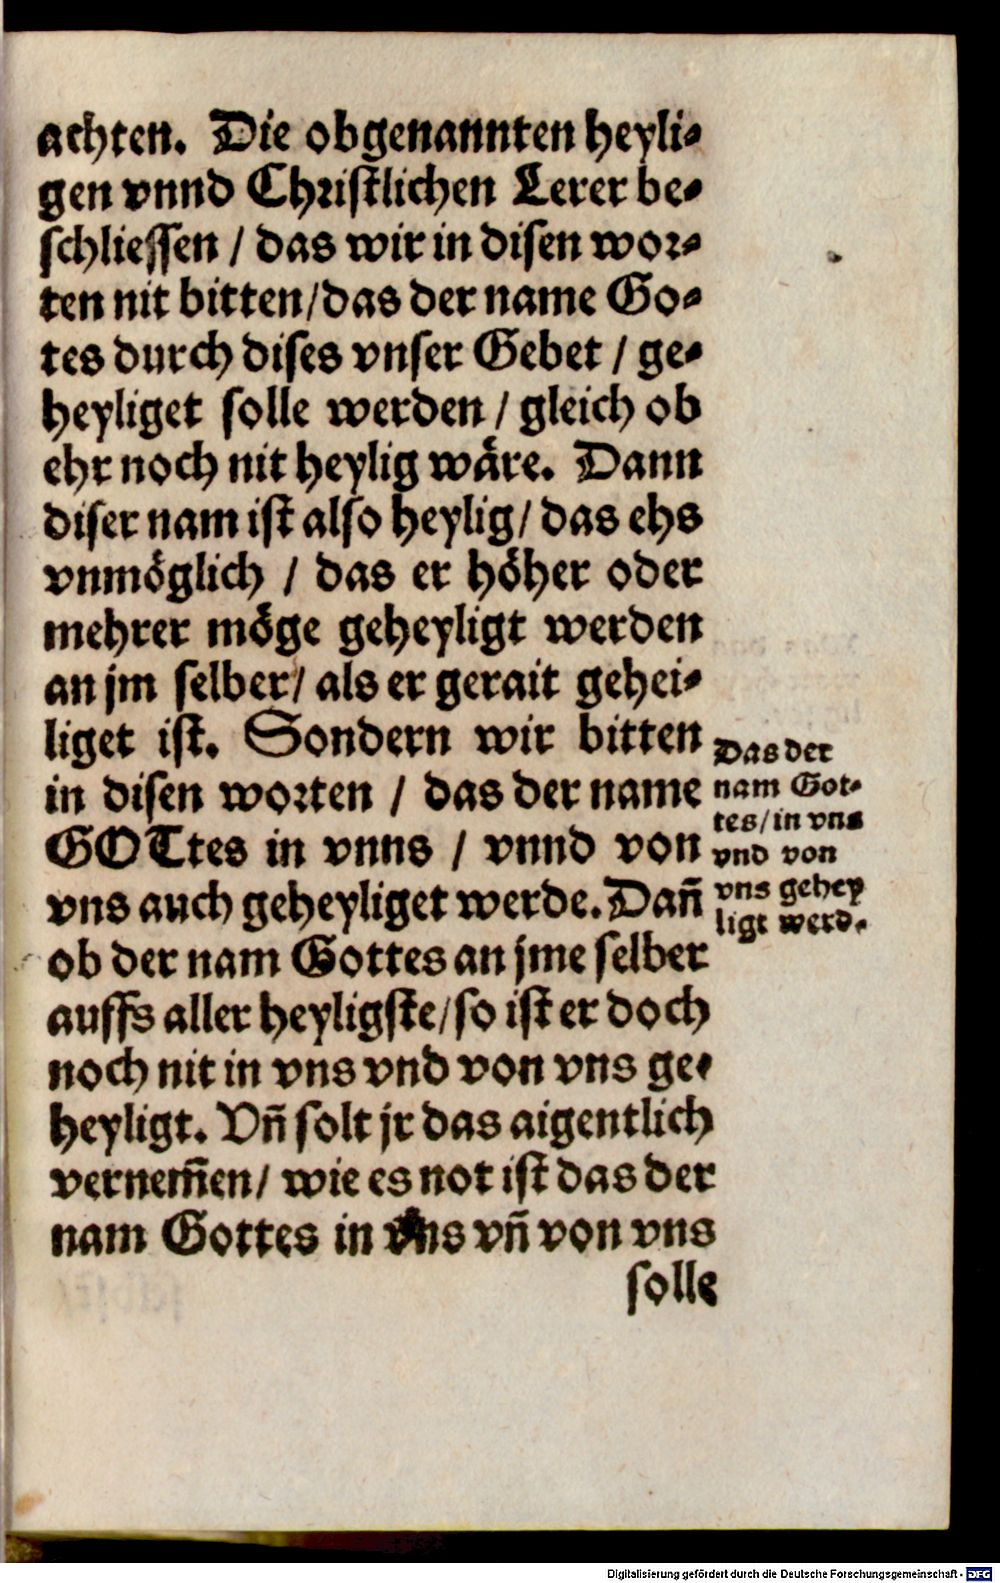 achten. Die obgenannten heyli-
gen vnnd Christlichen Lerer be-
schliessen / das wir in disen wor-
ten nit bitten/das der name Go-
tes durch dises vnser Gebet / ge-
heyliget solle werden / gleich ob
ehr noch nit heylig wäre. Dann
diser nam ist also heylig/ das ehs
vnmöglich / das er höher oder
mehrer möge geheyligt werden
an jm selber/ als er gerait gehei-
liget ist. Sondern wir bitten
in disen worten / das der name
GOTtes in vnns / vnnd von
vns auch geheyliget werde. Dañ
ob der nam Gottes an jme selber
auffs aller heyligste/so ist er doch
noch nit in vns vnd von vns ge-
heyligt. Vñ solt jr das aigentlich
vernem̃en/ wie es not ist das der
nam Gottes in vns vñ von vns
solle
Das der
nam Got-
tes/in vns
vnd von
vns gehey
ligt werd.
Digitalisierung gefördert durch die Deutsche Forschungsgemeinschaft - DFG